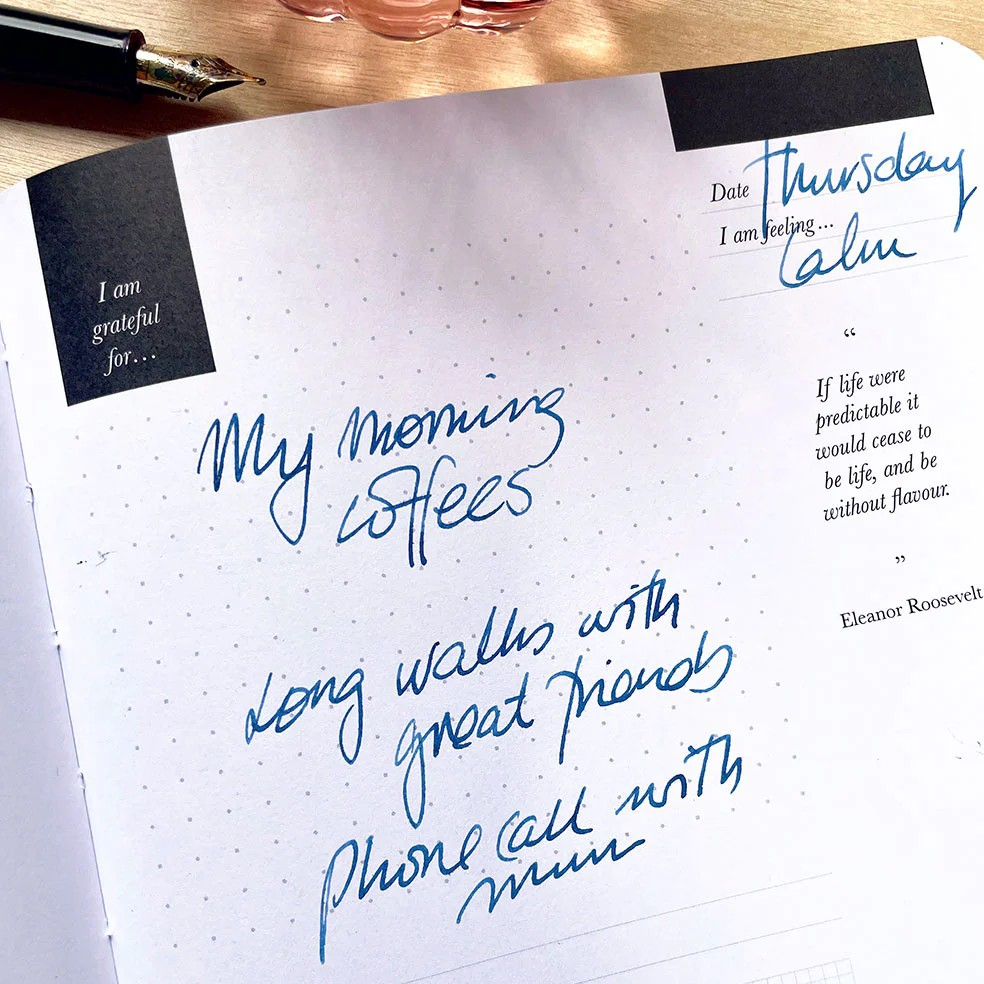 Date Thursday
I am feeling...
Calm
I am
grateful
for...
“
If life were
predictable it
would cease to
be life, and be
without flavour.
”
Eleanor Roosevelt
My morning
coffees
Long walks with
great friends
Phone call with
mum